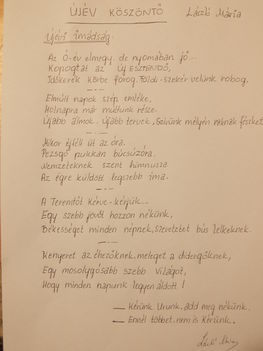 ÚJÉV KÖSZÖNTŐ László Mária
Újévi imádság.
Az Ó-év elmegy, de nyomában jő
Kopogtat az ÚJ ESZTENDŐ,
Időkerék körbe forog, Földi-szekér velünk robog.
Elmúlt napok szép emléke,
Holnapra már múltunk része.
Újabb álmok, Újabb tervek, Lelkünk mélyén raknak fészket
Mikor éjféli üt az óra,
Pezsgő pukkan búcsúzóra,
Nemzeteknek szent himnusza
Az égre küldött legszebb ima.
A Teremtőt kérve-kérjük,
Egy szebb jövőt hozzon nékünk,
Békességet minden népnek, Szeretetet bús lelkeknek.
Kenyeret az éhezőknek, meleget a didergőknek,
Egy mosolygósabb szebb világot,
Hogy minden napunk legyen áldott!
Kérünk Urunk, add meg nékünk.
Ennél többet nem is kérünk.